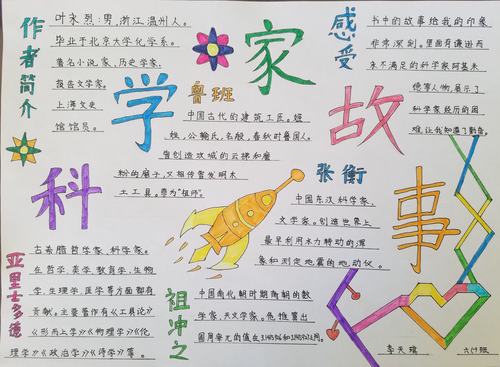 作者简介
叶永烈:男,浙江温州人。
毕业于北京大学化学系。
著名小说家、历史学家、
报告文学家。
上海文史
馆馆员。
科学家故事
鲁班
中国古代的建筑工匠。姬
姓,公输氏,名般,春秋时鲁国人。
曾创造攻城的云梯和磨
粉的磨子,又相传曾发明木
土工具。尊为"祖师"。
感受
书中的故事给我的印象
非常深刻。里面有谦逊而
永不满足的科学家阿基米
德等人物,展示了
科学家经历的困
难,让我知道了勤奋。
张衡
中国东汉科学家、
文学家。创造世界上
最早利用水力转动的浑
象和测定地震的地动仪。
亚里士多德
古希腊哲学家、科学家。
在哲学、美学、教育学、生物
学、生理学、医学等方面都有
贡献。主要著作有《工具论》
《形而上学》《物理学》《伦
理学》《政治学》《诗学》等。
祖冲之
中国南北朝时期南朝的数
学家、天文学家。他推算出
圆周率
李天瑞